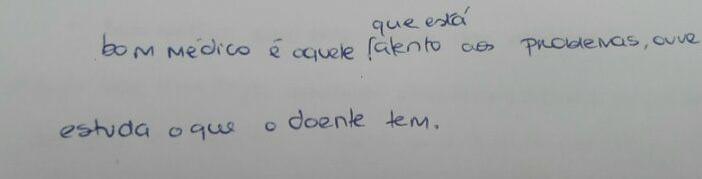 que está
bom médico é aquele atento aos problemas, ouve
estuda o que o doente tem.